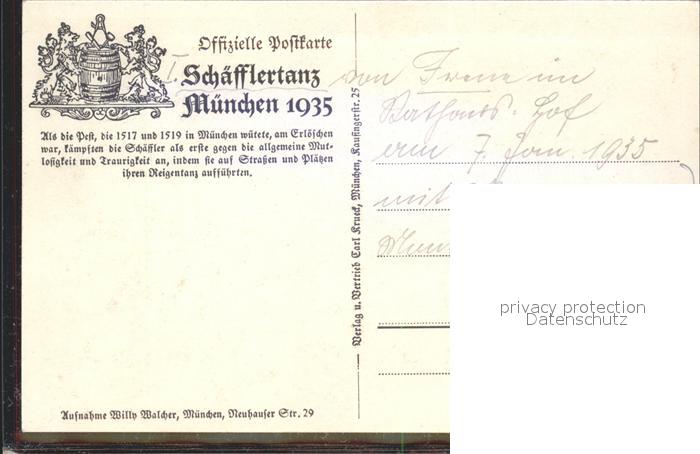 Offizielle Postkarte
I. Schäfflertanz
München 1935
Als die Pest, die 1517 und 1519 in München wütete, am Erlöschen
war, kämpften die Schäffler als erste gegen die allgemeine Mut-
losigkeit und Traurigkeit an, indem sie auf Straßen und Plätzen
ihren Reigentanz aufführten.
Aufnahme Willy Walcher, München, Neuhauser Str. 29
Verlag u. Vertrieb Carl Krueck, München, Kaufingerstr. 25
von Irene im
Rathaus-Hof
am 7. Jan. 1935
mit
privacy protection
Datenschutz